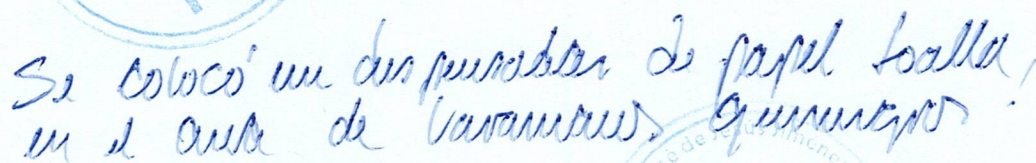 Se colocó un dispensador de papel toalla,
en el area de lavamanos quirurgicos.